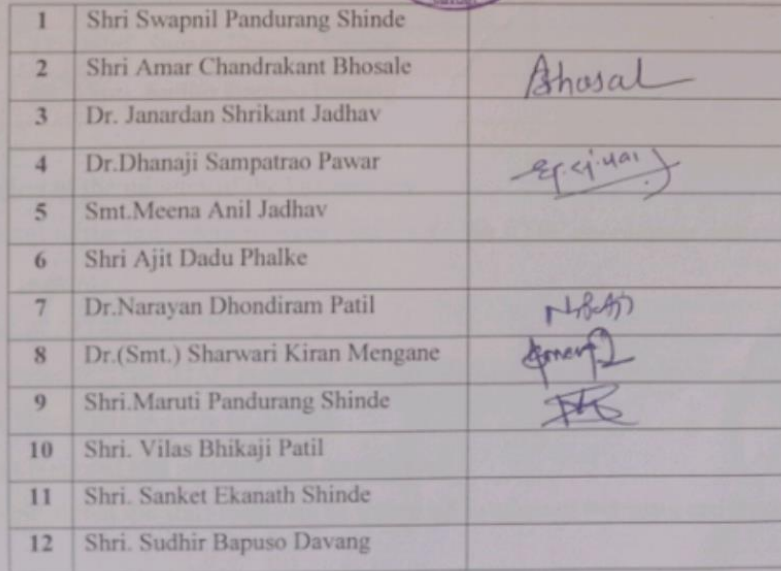 1 Shri Swapnil Pandurang Shinde
2 Shri Amar Chandrakant Bhosale Bhosal
3 Dr. Janardan Shrikant Jadhav
4 Dr.Dhanaji Sampatrao Pawar
5 Smt.Meena Anil Jadhav
6 Shri Ajit Dadu Phalke
7 Dr.Narayan Dhondiram Patil
8 Dr.(Smt.) Sharwari Kiran Mengane
9 Shri.Maruti Pandurang Shinde
10 Shri. Vilas Bhikaji Patil
11 Shri. Sanket Ekanath Shinde
12 Shri. Sudhir Bapuso Davang